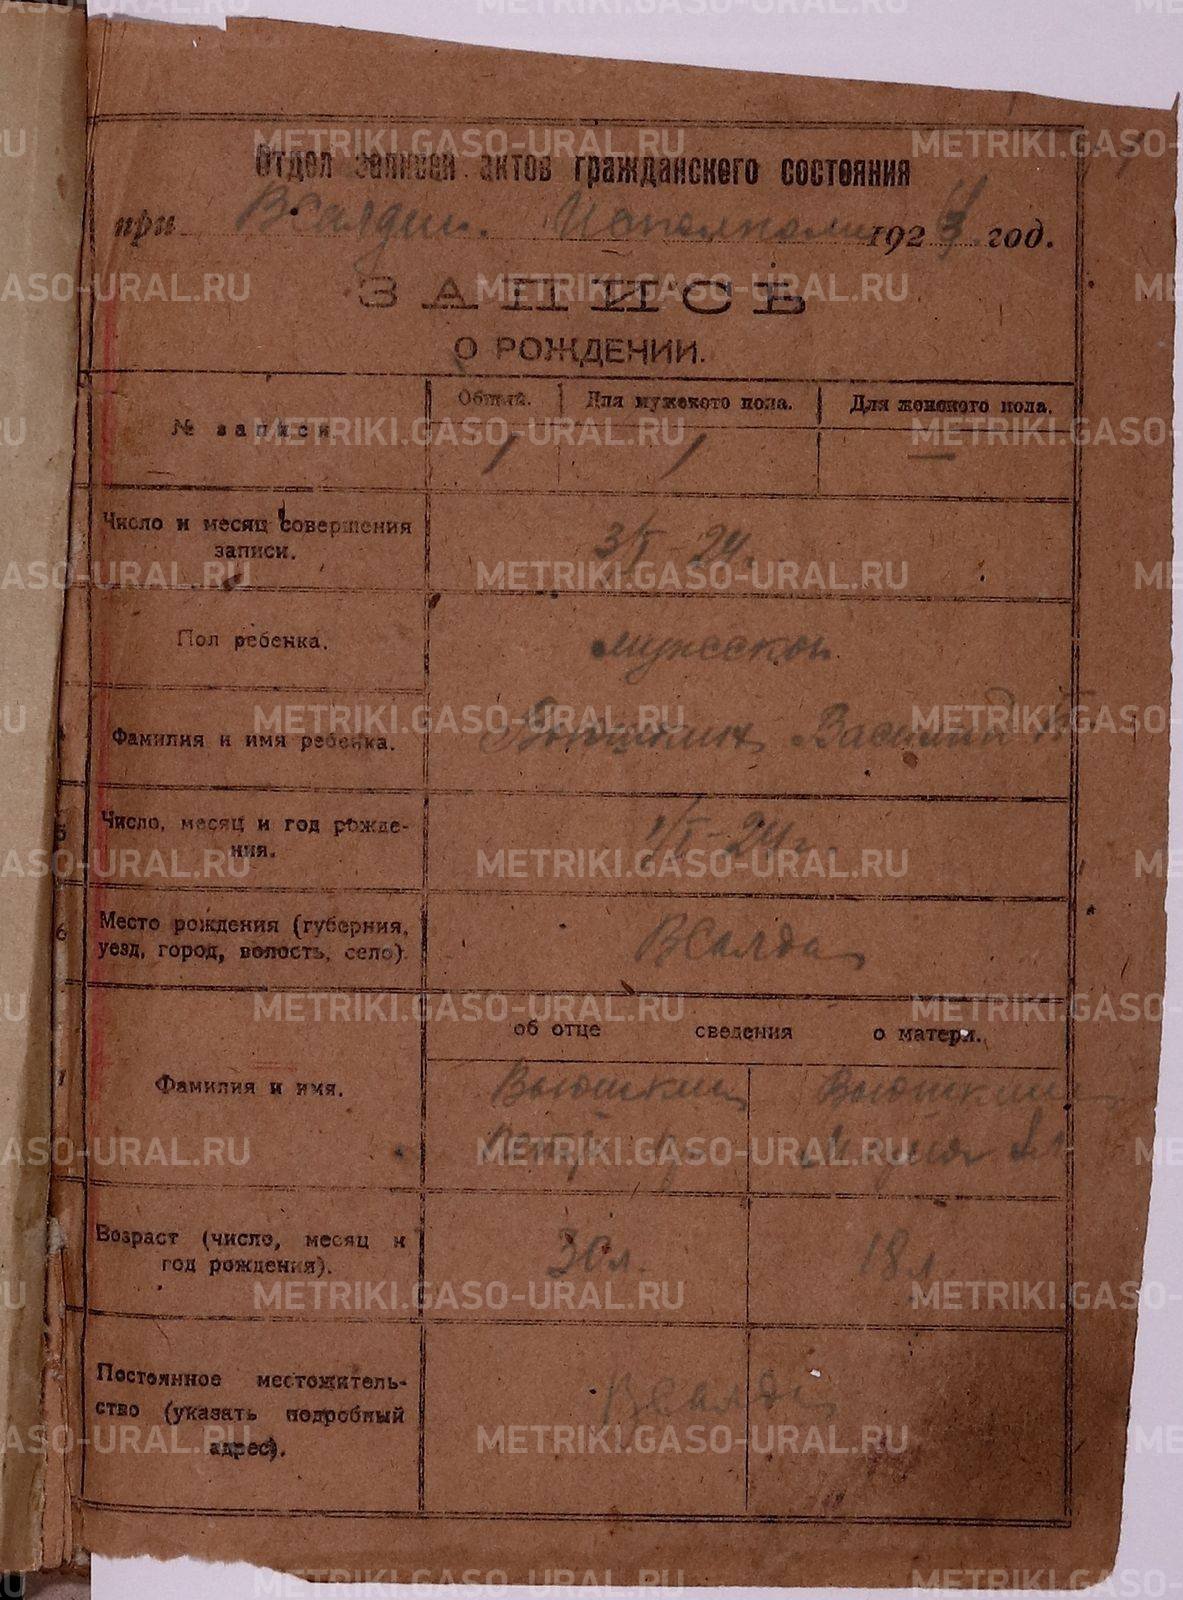 Отдел записей актов гражданского состояния
при ВСалдин. Исполкоме 1924 год.
ЗАПИСЬ
О РОЖДЕНИИ.
№ записи. Общий. Для мужского пола. Для женского пола.
1 1 —
Число и месяц совершения записи. 3/I-24г.
Пол ребенка. мужской
Фамилия и имя ребенка. Вьюшкин Василий
5 Число, месяц и год рождения. 1/I-24г.
6 Место рождения (губерния, уезд, город, волость, село). ВСалда
об отце сведения о матери.
Фамилия и имя. Вьюшкин Вьюшкина
Петр
Возраст (число, месяц и год рождения). 30л. 18л.
Постоянное местожительство (указать подробный адрес). ВСалда
METRIKI.GASO-URAL.RU